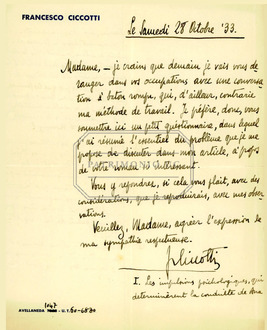 FRANCESCO CICCOTTI
Le Samedi 28 Octobre '33.
Madame, — je crains que demain je vais vous dé-
ranger dans vos occupations avec une conversa-
tion à bâton rompu, qui, d'ailleurs, contrarie
ma méthode de travail. Je préfère, donc, vous
soumettre ici un petit questionnaire, dans lequel
j'ai résumé l'essentiel du problème que je me
propose de discuter dans mon article, à propos
de votre roman si intéressant.
Vous y repondrez, si cela vous plaît, avec des
considérations, que je reproduirais, avec mes obser-
vations.
Veuillez, Madame, agréer l'expression de
ma sympathie respectueuse.
F. Ciccotti
I. Les impulsions psichologiques, qui
determinèrent la conduite de
AVELLANEDA 1047 - U. T. 60-6870